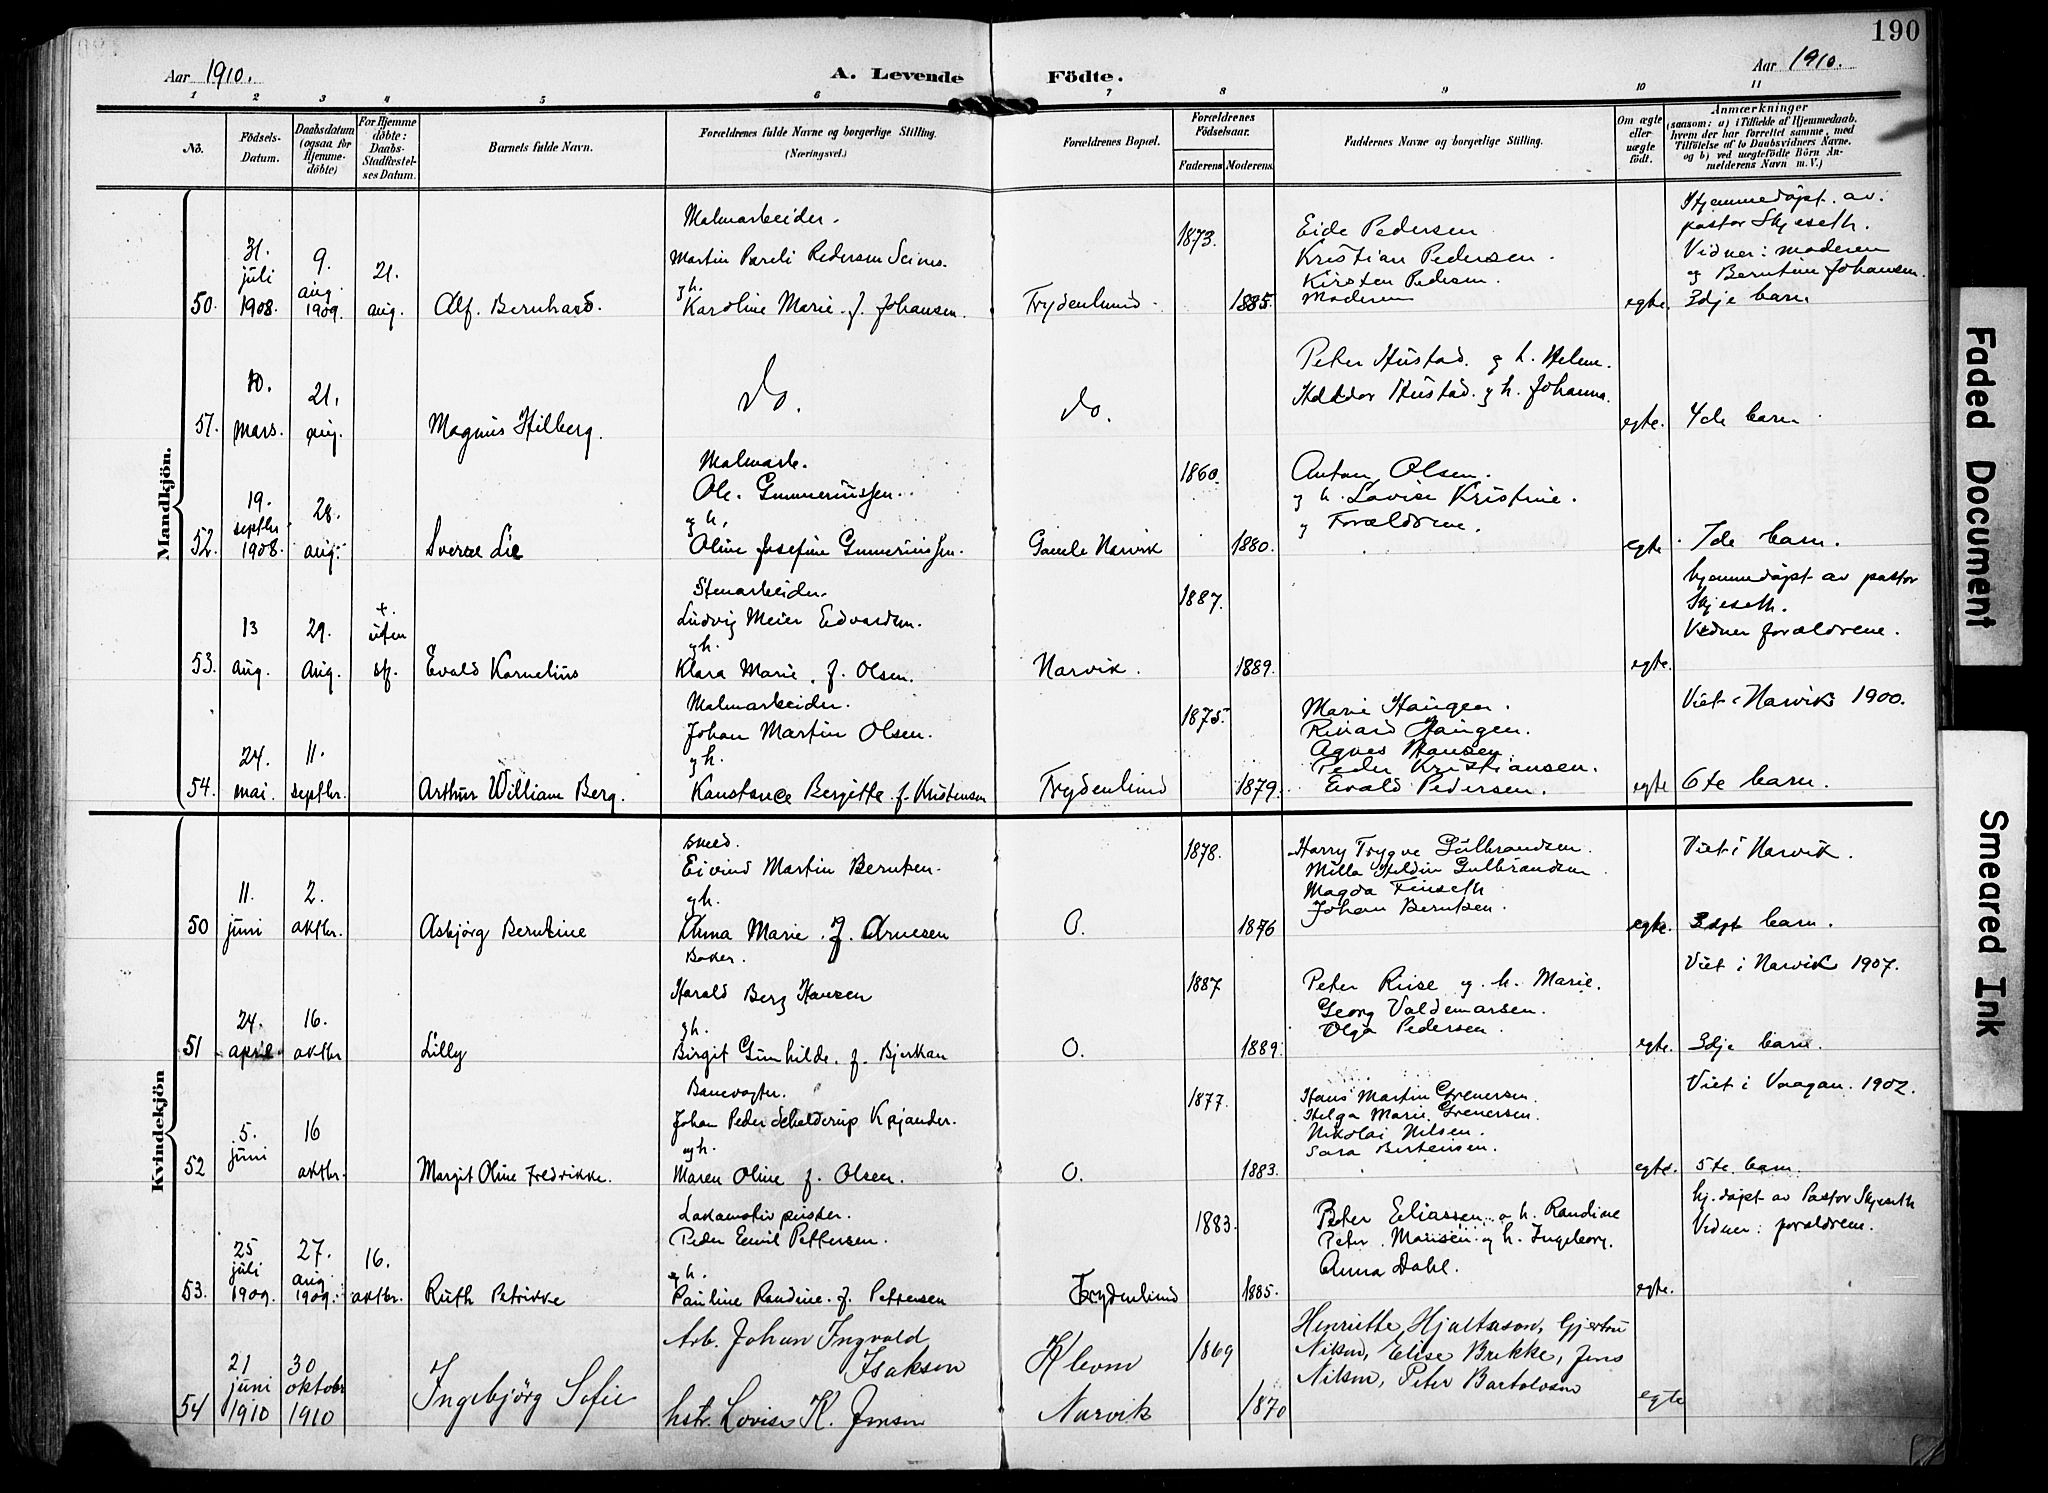 190
Aar 1910.
A. Levende Födte.
Aar 1910.
1 2 3 4 5 6 7 8 9 10 11
No.
Födsels-Datum.
Daabsdatum (ogsaa for Hjemme-döbte)
For Hjemme döbte: Daabs-Stadfæstel-ses Datum.
Barnets fulde Navn.
Forældrenes fulde Navne og borgerlige Stilling. (Næringsvei.)
Forældrenes Bopæl.
Forældrenes Födselsaar.
Faderens Moderens
Faddernes Navne og borgerlige Stilling.
Om ægte eller uægte födt.
Anmærkninger
(saasom: a) i Tilfælde af Hjemmedaab,
hvem der har forrettet samme, med
Tilföielse af to Daabsvidners Navne,
og b) ved uegtefödte Börn An-
melderens Navn m.V.)
Mandkjön.
50. 31. juli 1908. 9. aug. 1909. 21. aug. Alf. Bernhard.
Malmarbeider.
Martin Pareli Pedersen Seines.
gh.
Karoline Marie f. Johansen.
Frydenlund. 1873. 1885.
Eide Pedersen
Kristian Pedersen.
Kirsten Pedersen.
Moderen
egte.
Hjemmedøpt av.
pastor Skjeseth.
Vidner: moderen
og Berntine Johansen.
3dje barn
51. 10. mars. 21. aug. Magnus Hilberg.
do.
do.
Peter Hustad. og h. Helene.
Haldor Hustad. og h. Johanna.
egte. 4de barn
52. 19. septbr. 1908. 28. aug. Sverre Lie
Malmarb.
Ole Gunneriussen.
gh.
Oline Josefine Gunneriussen.
Gamle Narvik 1860. 1880.
Anton Olsen.
og h. Lovise Kristine.
og Forældrene.
egte 7de barn.
53. 13 aug. 29. aug. +. uten stf. Evald Kornelius
Stenarbeider.
Ludvig Meier Edvardsen.
gh.
Klara Marie. f. Olsen.
Narvik. 1887. 1889.
egte.
hjemmedøpt av pastor
Skjeseth.
Vidner forældrene.
54. 24. mai. 11. septbr. Arthur William Berg.
Malmarbeider.
Johan Martin Olsen.
gh.
Konstance Bergitte f. Kristensen
Frydenlund 1875. 1879.
Marie Haugen.
Rikard Haugen.
Agnes Hansen
Peder Kristiansen.
Evald Pedersen.
egte
Viet i Narvik 1900.
6te barn.
Kvindekjön
50 11. juni 2. oktbr. Asbjørg Berntine
smed.
Eivind Martin Berntsen.
gh.
Anna Marie. f. Arnesen
O. 1878. 1876
Harry Trygve Gulbrandsen.
Milla Heldin Gulbrandsen
Magda Finseth
Johan Berntsen.
egte.
Viet i Narvik.
barn.
51 24. april 16. oktbr Lilly
Baker.
Harald Berg Hansen
gh.
Birgit Gunhilde. f. Bjerkan
O. 1887 1889.
Peter Riise og h. Marie.
Georg Valdemarsen.
Olga Pedersen.
egte.
Viet i Narvik 1907.
3dje barn.
52 5. juni 16 oktbr. Margit Oline Fredrikke.
Banevogter.
Johan Peder Schelderup
ogh.
Maren Oline f. Olsen.
O. 1877. 1883.
Hans Martin Grenersen.
Helga Marie Grenersen.
Nikolai Nilsen.
Sara Berntsen.
egte.
Viet i Vaagan. 1902.
5te. barn.
53. 25 juli 1909. 27. aug. 1909. 16. oktbr. Ruth Petrikke
Lokomotiv pudser.
Peder Emil Pettersen.
gh.
Pauline Randine. f. Pettersen
Frydenlund 1883. 1885.
Peter Eliassen og h. Randine
Peter Monsen og h. Ingeborg.
Anna Dahl.
egte.
hj. døpt av Pastor Skjeseth
Vidner: forældrene.
54 21 juni 1910 30 oktober 1910 Ingebjörg Sofie
Arb. Johan Ingvald
Isaksen
hstr. Lovise K. Jensen
Narvik 1869 1870
Henriette Hjaltason, Gjertru
Nilsen, Elise Brekke, Jens
Nilsen, Peter Bartolosen
egte
Faded Document
Smeared Ink